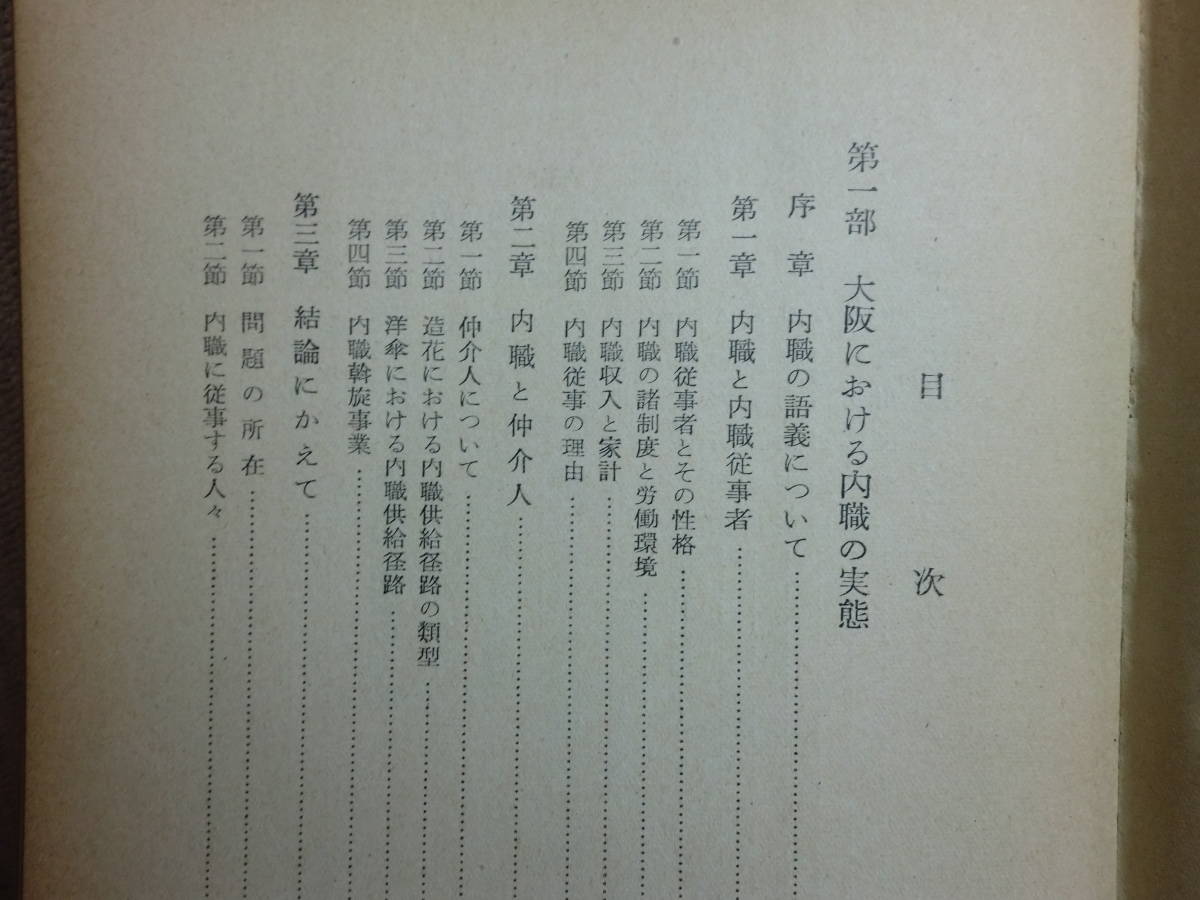 目次
第一部 大阪における内職の実態
序章 内職の語義について……………………
第一章 内職と内職従事者……………………
第一節 内職従事者とその性格……………………
第二節 内職の諸制度と労働環境……………………
第三節 内職収入と家計……………………
第四節 内職従事の理由……………………
第二章 内職と仲介人……………………
第一節 仲介人について……………………
第二節 造花における内職供給径路の類型……………………
第三節 洋傘における内職供給径路……………………
第四節 内職斡旋事業……………………
第三章 結論にかえて……………………
第一節 問題の所在……………………
第二節 内職に従事する人々……………………